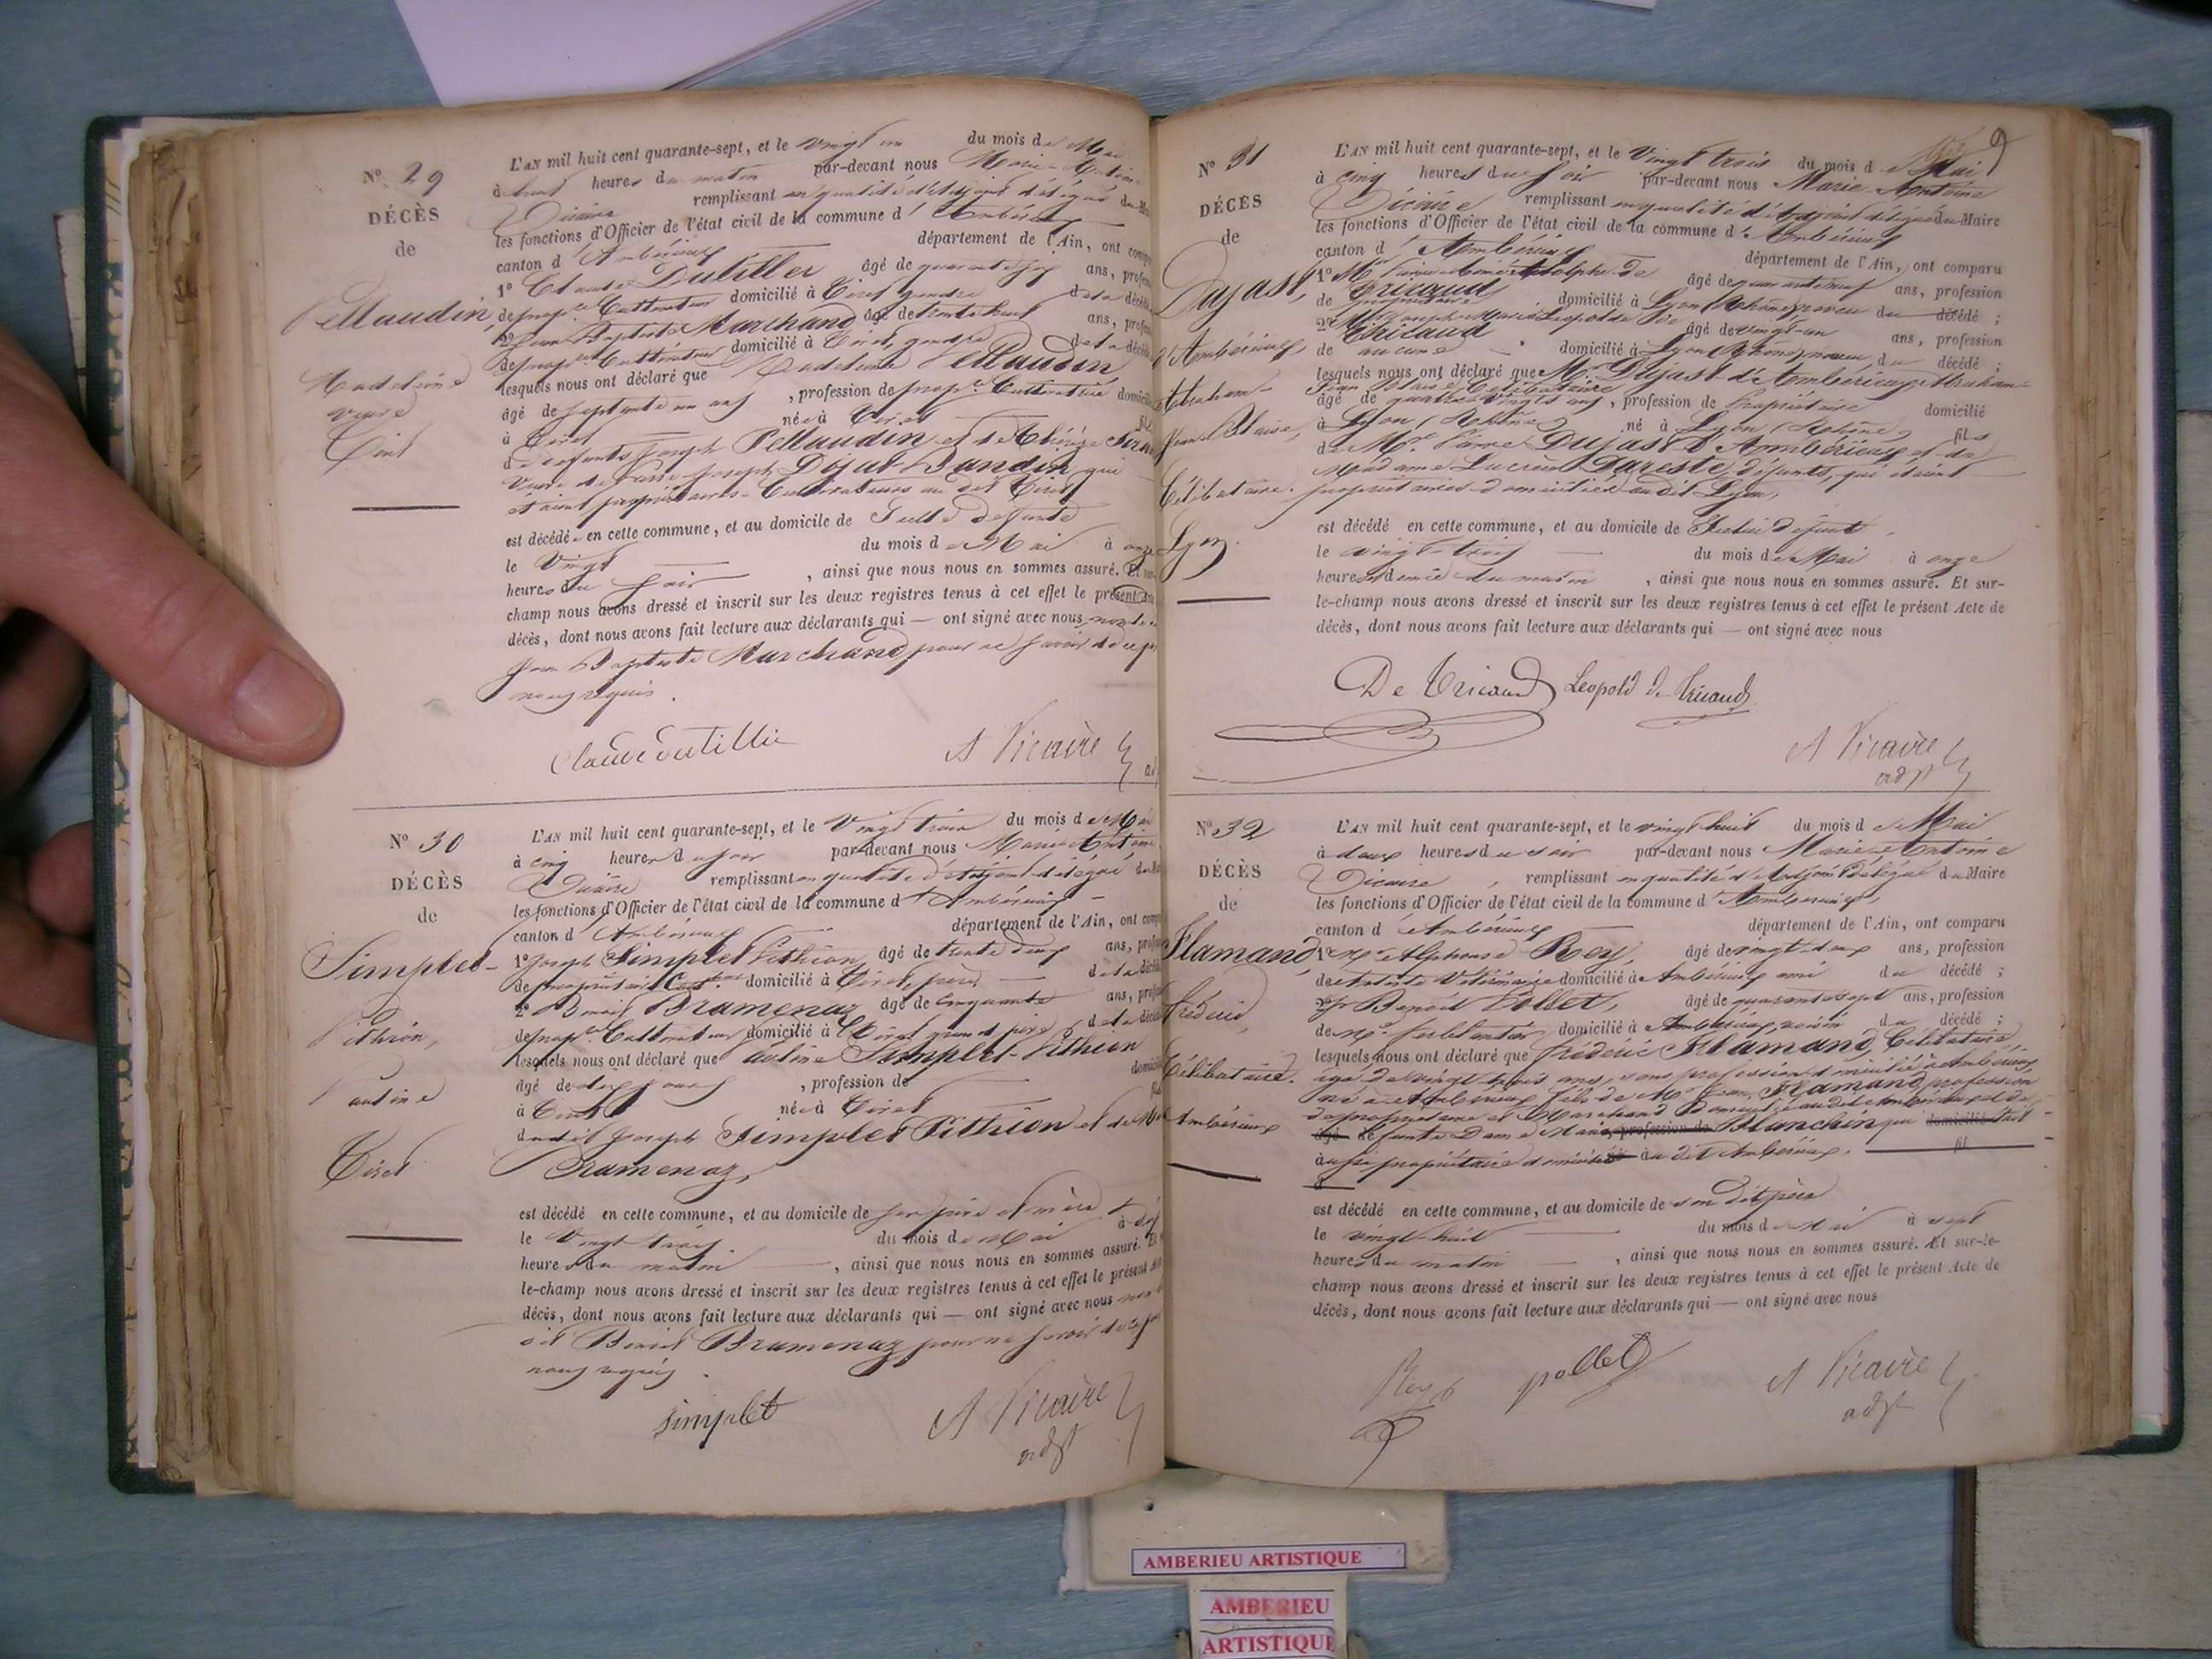 Nº 29
DÉCÈS
de
Pellaudin,
Madeleine
veuve
Tiret
L'AN mil huit cent quarante-sept, et le Vingt un du mois de Mai
à huit heures du matin par-devant nous Marie Antoine
Vicaire remplissant en qualité d'Adjoint délégué du Mai
les fonctions d'Officier de l'état civil de la commune d'Ambérieux
canton d'Ambérieux département de l'Ain, ont comp
1º Claude Dutillier âgé de quarante six ans, profes
de prop.re Cultivateur domicilié à Tiret, gendre de la décéd
2º Jean Baptiste Marchand âgé de trente huit ans, profes
de prop.re Cultivateur domicilié à Tiret, gendre de la décéd
lesquels nous ont déclaré que Madeleine Pellaudin
âgé de septante un ans, profession de prop.re Cultivatrice domicil
à Tiret née à Tiret fil
de défunts Joseph Pellaudin et de Thérèse
veuve de Joseph Dijat Bandin qui
étaient propriétaires-Cultivateurs au dit Tiret
est décédée en cette commune, et au domicile de Ladite défunte
le Vingt du mois de Mai à onze
heures du soir, ainsi que nous nous en sommes assuré. Et sur
champ nous avons dressé et inscrit sur les deux registres tenus à cet effet le présent Acte
décès, dont nous avons fait lecture aux déclarants qui — ont signé avec nous, non le
Jean Baptiste Marchand pour ne savoir de ce par
nous requis.
Claude Dutillie
A Vicaire
Nº 30
DÉCÈS
de
Simplet-
Pithion,
Pauline
Tiret
L'AN mil huit cent quarante-sept, et le Vingt trois du mois de Mai
à cinq heures du soir par-devant nous Marie Antoine
Vicaire remplissant en qualité d'Adjoint délégué du
les fonctions d'Officier de l'état civil de la commune d'Ambérieux
canton d'Ambérieux département de l'Ain, ont comp
1º Joseph Simplet Pithion, âgé de trente deux ans, profes
de propriétaire Cult. domicilié à Tiret, père de la décéd
2º Benoit Bramenaz âgé de Cinquante ans, profes
de prop.re Cultivateur domicilié à Tiret grand père de la décéd
lesquels nous ont déclaré que Pauline Simplet-Pithion
âgé de dix jours, profession de domicil
à Tiret née à Tiret
dudit Joseph Simplet Pithion et de
Bramenaz,
est décédé en cette commune, et au domicile de ses père et mère
le Vingt trois du mois de Mai à dix
heures du matin, ainsi que nous nous en sommes assuré. Et
le-champ nous avons dressé et inscrit sur les deux registres tenus à cet effet le présent Acte
décès, dont nous avons fait lecture aux déclarants qui — ont signé avec nous non le
dit Benoit Bramenaz pour ne savoir de ce par
nous requis.
Simplet
A Vicaire
adjt
9
Nº 31
DÉCÈS
de
Dujast,
d'Ambérieux,
Abraham-
Jean-Blaise,
Célibataire.
Lyon.
L'AN mil huit cent quarante-sept, et le Vingt trois du mois de Mai
à cinq heures du soir par-devant nous Marie Antoine
Vicaire remplissant en qualité d'Adjoint délégué du Maire
les fonctions d'Officier de l'état civil de la commune d'Ambérieux
canton d'Ambérieux département de l'Ain, ont comparu
1º Mr Adolphe de Tricaud âgé de quarante neuf ans, profession
de propriétaire domicilié à Lyon (Rhône) neveu du décédé ;
2º Mr Joseph Marie Léopold de Tricaud âgé de vingt-un ans, profession
de aucune domicilié à Lyon (Rhône) neveu, du décédé ;
lesquels nous ont déclaré que Mr Dujast d'Ambérieux Abraham-
Jean Blaise Célibataire
âgé de quatre-vingts ans, profession de Propriétaire domicilié
à Lyon (Rhône) né à Lyon (Rhône) fils
de Mr Pierre Dujast d'Ambérieux et de
Madame Lucrèce Dareste, défunts, qui étaient
propriétaires domiciliés audit Lyon,
est décédé en cette commune, et au domicile de Ledit défunt
le vingt-trois du mois de Mai à onze
heures et demie du matin, ainsi que nous nous en sommes assuré. Et sur-
le-champ nous avons dressé et inscrit sur les deux registres tenus à cet effet le présent Acte de
décès, dont nous avons fait lecture aux déclarants qui — ont signé avec nous
De Tricaud Leopold de Tricaud
A Vicaire
adjt
Nº 32
DÉCÈS
de
Flamand,
Frédéric,
Célibataire.
Ambérieux
L'AN mil huit cent quarante-sept, et le vingt huit du mois de Mai
à deux heures du soir par-devant nous Marie Antoine
Vicaire, remplissant en qualité d'Adjoint Délégué du Maire
les fonctions d'Officier de l'état civil de la commune d'Ambérieux,
canton d'Ambérieux département de l'Ain, ont comparu
1º Mr Alphonse Rey, âgé de vingt-deux ans, profession
de Artiste Vétérinaire domicilié à Ambérieux ami du décédé ;
2º Sr Benoit Pollet, âgé de quarante sept ans, profession
de Md ferblantier domicilié à Ambérieux, voisin du décédé ;
lesquels nous ont déclaré que Frédéric Flamand, Célibataire
âgé de vingt trois ans, sans profession domicilié à Ambérieux,
né à Ambérieux fils de Mr Jean Flamand, profession
de propriétaire et Marchand Domicilié audit Ambérieux et de
défunte Dame Marie Blanchin qui était
aussi propriétaire domiciliée au dit Ambérieux.
est décédé en cette commune, et au domicile de son dit père
le vingt-huit du mois de Mai à sept
heures du matin, ainsi que nous nous en sommes assuré. Et sur-le-
champ nous avons dressé et inscrit sur les deux registres tenus à cet effet le présent Acte de
décès, dont nous avons fait lecture aux déclarants qui — ont signé avec nous
Rey
pollet
A Vicaire
adjt
AMBERIEU ARTISTIQUE
AMBERIEU
ARTISTIQUE